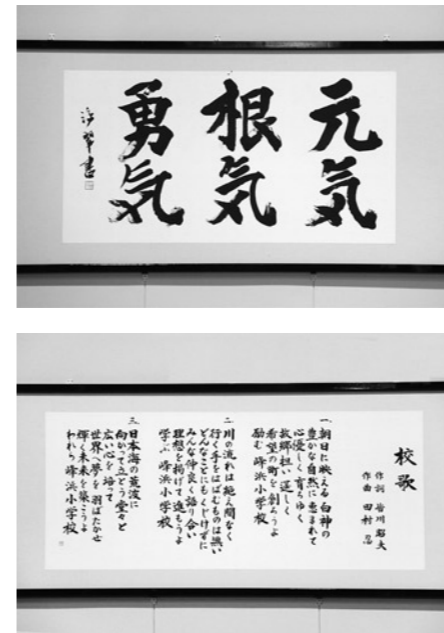 元気
根気
勇気
書
校歌
作詞 皆川
作曲 田村
一、朝日に映える白神の
豊かな自然に恵まれて
心優しく育ちゆく
故郷担い逞しく
希望の町を創ろうよ
励む 峰浜小学校
二、川の流れは絶え間なく
行く手をはばむものは無い
どんなことにもくじけずに
みんな仲良く語り合い
理想を掲げて進もうよ
学ぶ 峰浜小学校
三、日本海の荒波に
向かって立とう堂々と
広い心を培って
世界へ夢を羽ばたかせ
輝く未来を築こうよ
われら 峰浜小学校